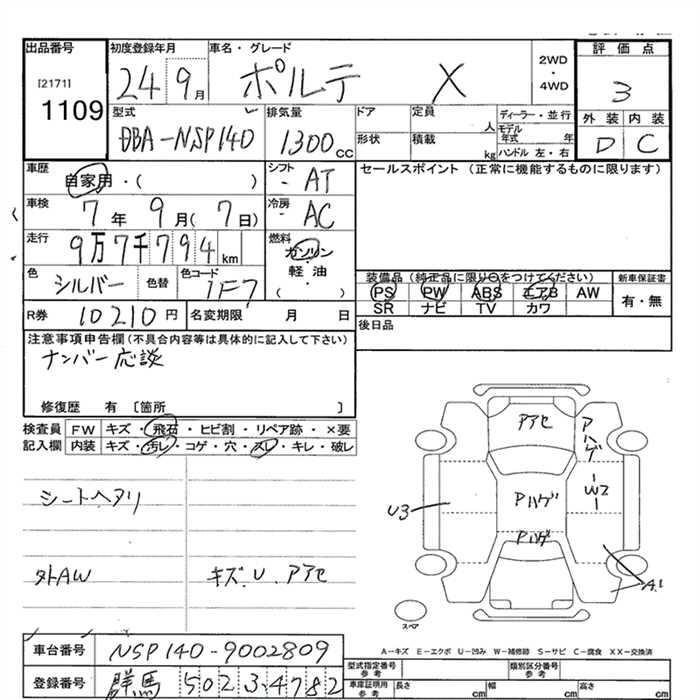 出品番号 初度登録年月 車名・グレード 2WD・4WD 評価点
[2171] 1109 24 9月 ポルテ X 3
型式 排気量 ドア 定員 人 ディーラー・並行 外装 内装
DBA-NSP140 1300cc 形状 積載 kg モデル年式 年 ハンドル 左・右 D C
車歴 自家用・( ) シフト AT セールスポイント (正常に機能するものに限ります)
車検 7年 9月(7日) 冷房 AC
走行 9万7千794km 燃料 ガソリン・軽油・( )
色 シルバー 色替 色コード 1F7
装備品 (純正品に限り○をつけてください) 新車保証書
PS PW ABS エアB AW 有・無
SR ナビ TV カワ
R券 10210円 名変期限 月 日 後日品
注意事項申告欄(不具合内容等は具体的に記入して下さい)
ナンバー応談
修復歴 有 〔箇所 〕
検査員 FW キズ・飛石・ヒビ割・リペア跡・×要
記入欄 内装 キズ・汚レ・コゲ・穴・スレ・キレ・破レ
シートヘタリ
外AW キズ.U.アアセ
アアセ
アハゲ
W2
Pハゲ
Pハゲ
U3
A1
スペア
A-キズ E-エクボ U-凹み W-補修跡 S-サビ C-腐食 XX-交換済
車台番号 NSP140-9002809
型式指定番号 参考 類別区分番号 参考
登録番号 群馬 502 3 4782
車庫証明用 参考 長さ cm 幅 cm 高さ cm